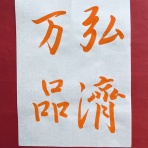 弘濟
万品